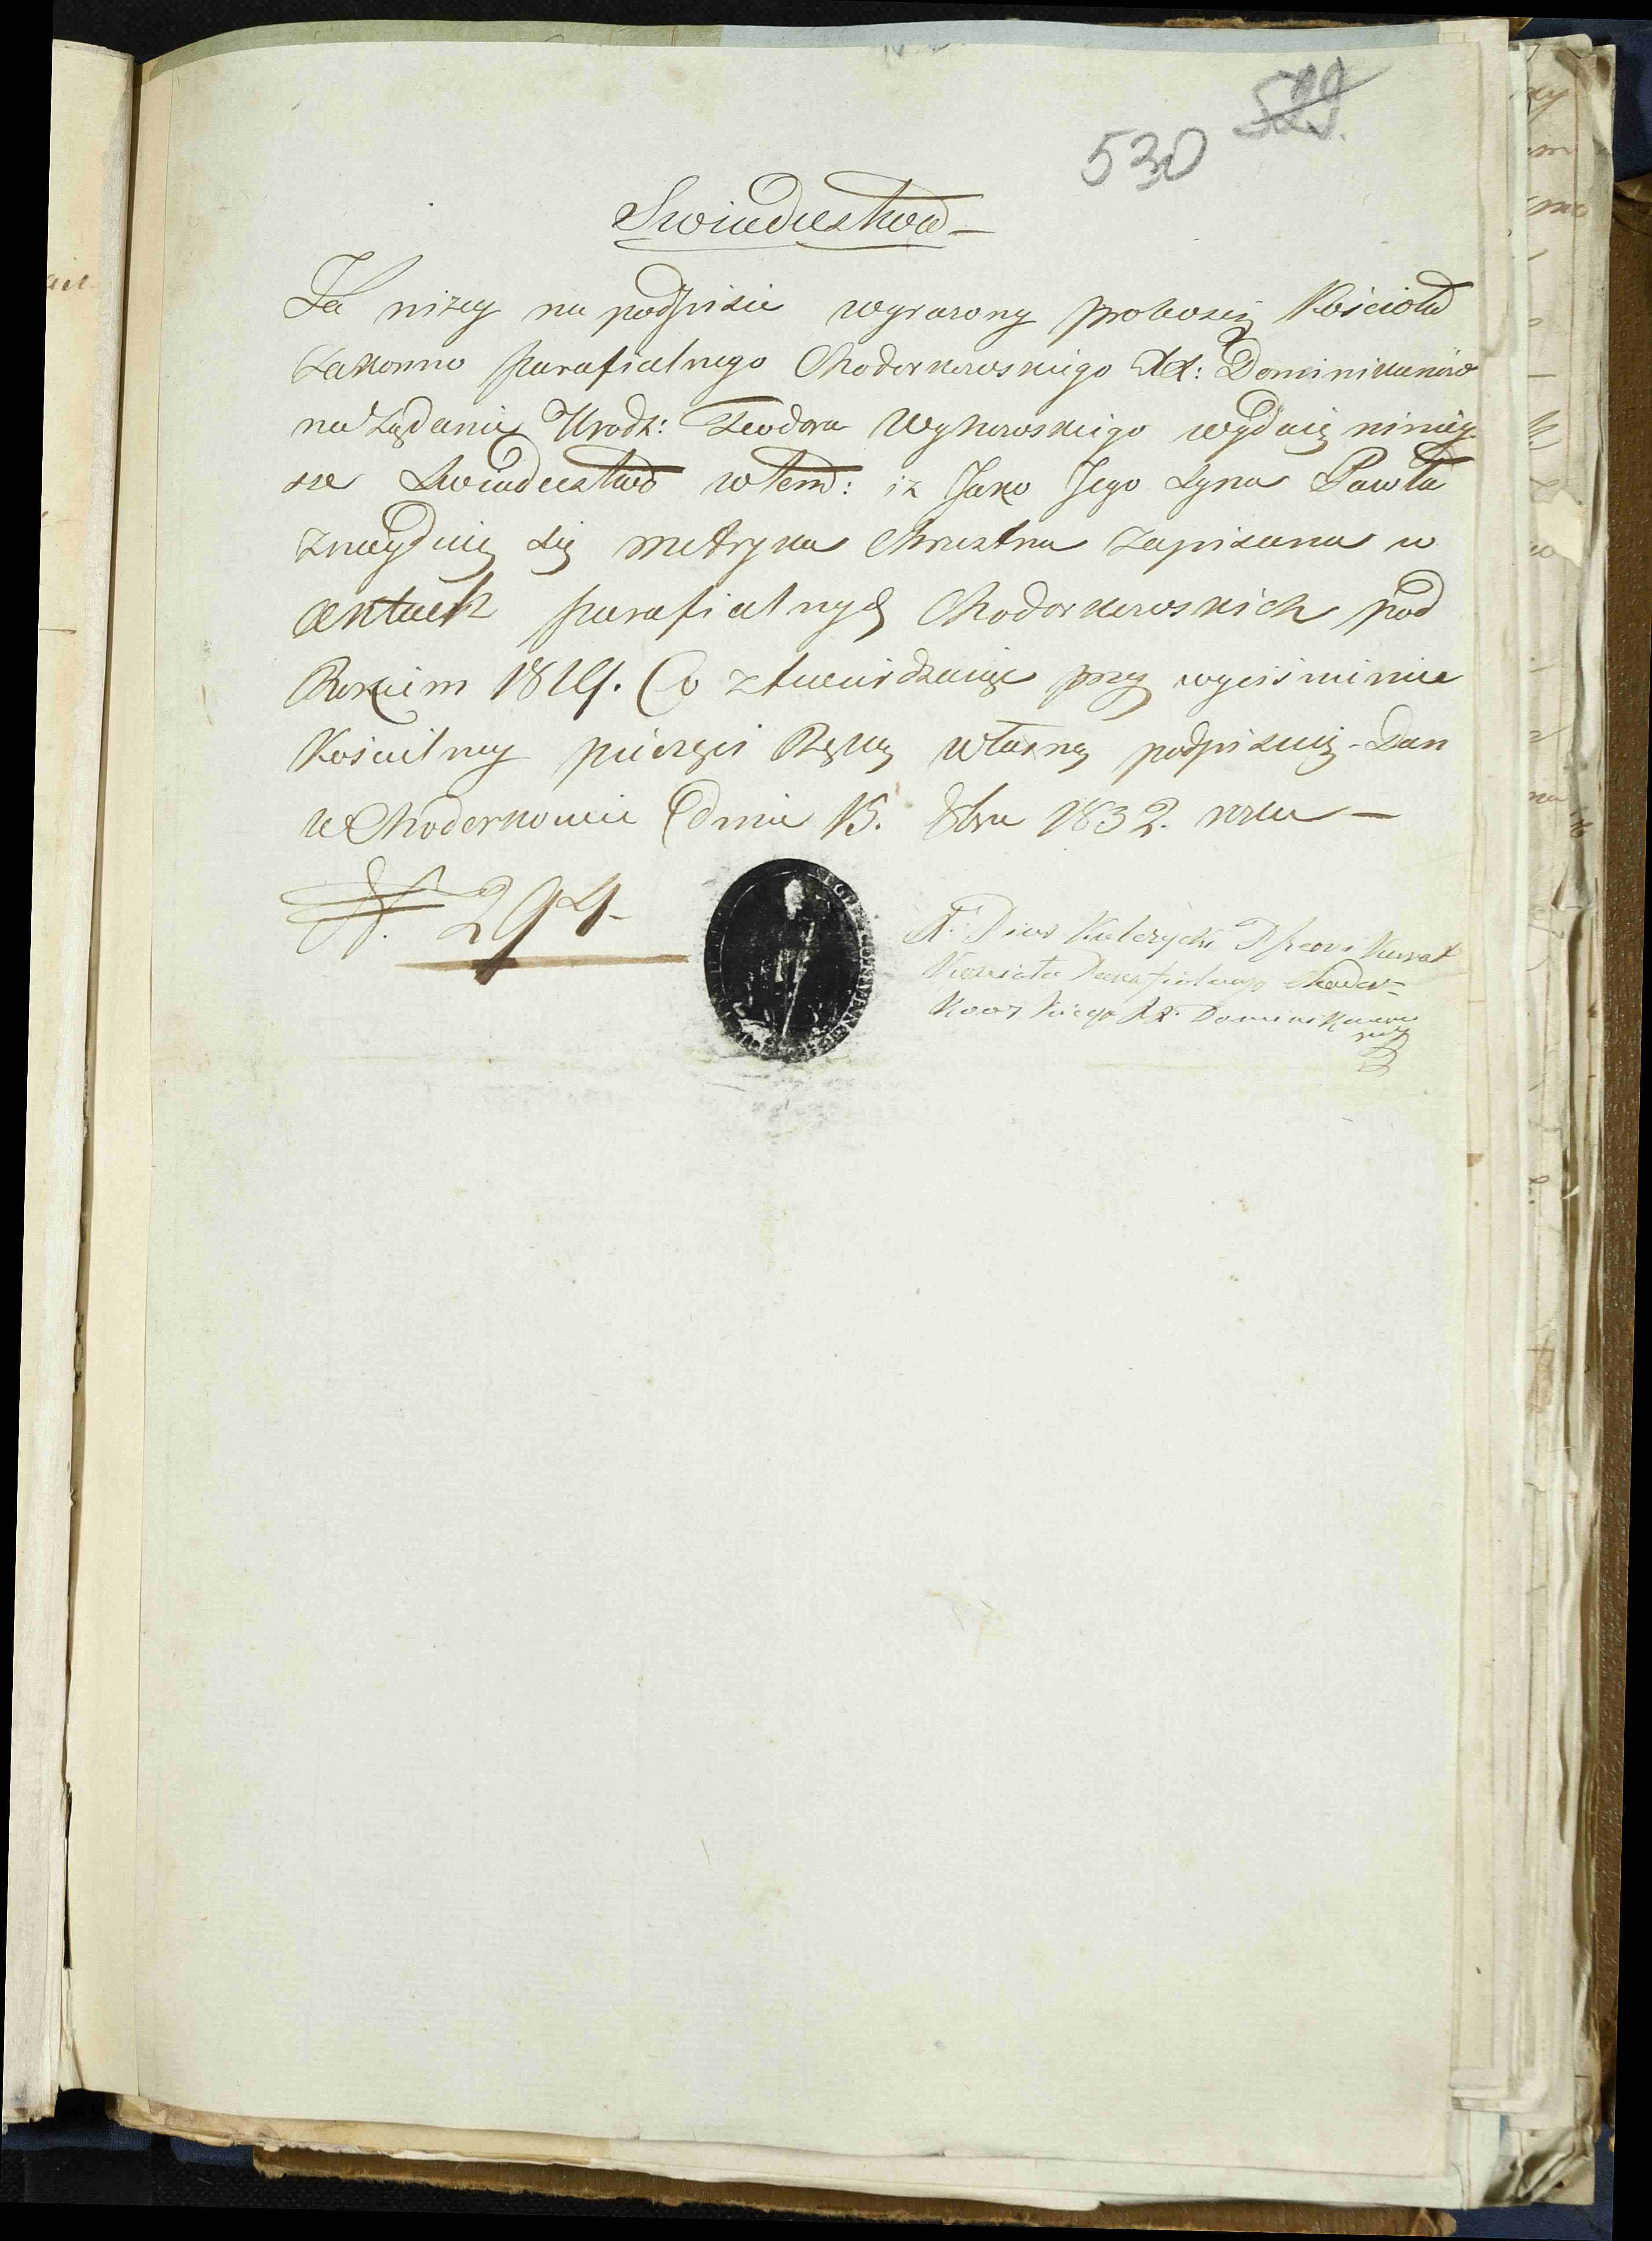 529.
530
Swiadectwo –
Ja niżey na podpisie wyrażony proboszcz Kościoła
Zakonno parafialnego Chodorkowskiego XX: Dominikanów
na żądanie Urodz: Teodora Wyhowskiego wydaię niniey-
sze Swiadectwo wtem: iż Jako Jego Syna Pawła
znayduie się metryka Chrzestna zapisana w
Aktach parafialnych Chodorkowskich pod
Rokiem 1814. Co ztwierdzaiąc przy wyciśnieniu
Kościelney pieczęci Ręką własną podpisuię - Dan
w Chodorkowie dnia 15. 8bra 1832. roku –
N. 294
X. Pius Kulczycki Przeor Kurat
Kościoła Parafialnego Chodor=
kowskiego XX. Dominikanow